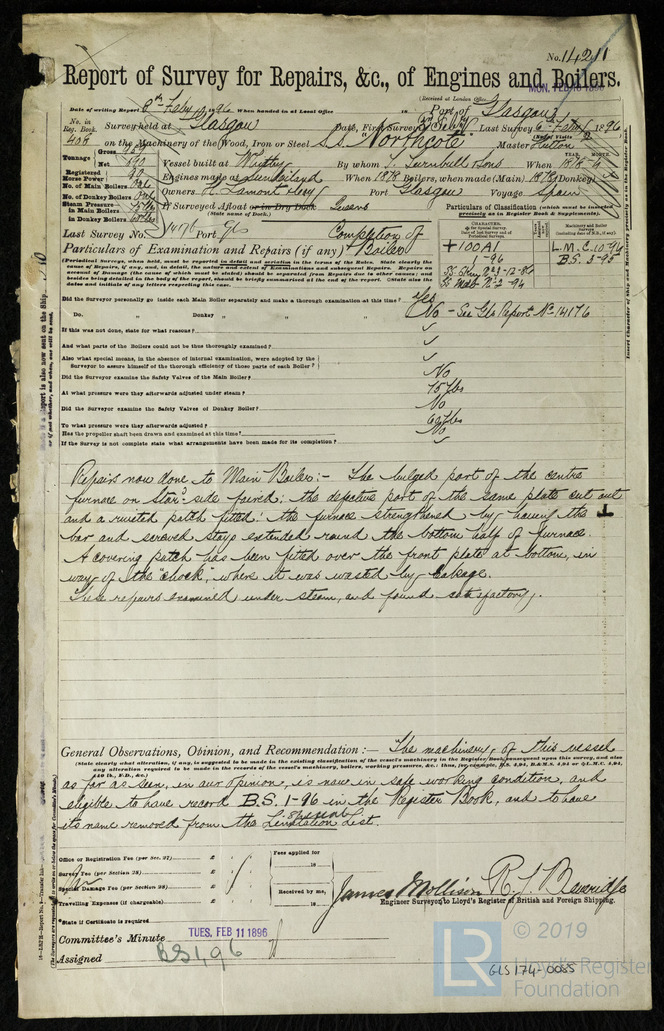 No. 14211
Report of Survey for Repairs, &c., of Engines and Boilers.
(Received at London Office
MON. FEB 10 1896
Date of writing Report 8th Feby 1896 When handed in at Local Office 18 Port of Glasgow
No. in Reg. Book. 408 Survey held at Glasgow Date, First Survey Last Survey 6th Feby 1896
(No. of Visits
on the Machinery of the Wood, Iron or Steel S.S. "Northcote" Master Hutton
Tonnage Gross Net
Vessel built at Whitby By whom T. Turnbull & Sons When 1878 4
Registered Horse Power 90 Engines made at Sunderland When 1878 Boilers, when made (Main) 1878 (Donkey)
No. of Main Boilers
No. of Donkey Boilers
Owners H. Lamont & Coy Port Glasgow Voyage Spain
Steam Pressure in Main Boilers
in Donkey Boilers
If Surveyed Afloat or in Dry Dock Queens
(State name of Dock.)
Particulars of Classification (which must be inserted precisely as in Register Book & Supplements).
Last Survey No. 14176 Port Gls
Completion of Boiler
Particulars of Examination and Repairs (if any)
(Periodical Surveys, when held, must be reported in detail and seriatim in the terms of the Rules. State clearly the causes of Repairs, if any, and, in detail, the nature and extent of Examinations and subsequent Repairs. Repairs on account of Damage (the cause of which must be stated) should be separated from Repairs due to other causes; and besides being detailed in the body of the report, should be briefly summarised at the end of the report. State also the dates and initials of any letters respecting this case.
CHARACTER.
Machinery and Boiler Surveys
+100A1
1-96
L.M.C. 10-94
B.S. 3-95
Did the Surveyor personally go inside each Main Boiler separately and make a thorough examination at this time? Yes
Do. " Donkey " " " No - See Gls Report No. 14176
If this was not done, state for what reasons?
And what parts of the Boilers could not be thus thoroughly examined?
Also what special means, in the absence of internal examination, were adopted by the Surveyor to assure himself of the thorough efficiency of those parts of each Boiler?
Did the Surveyor examine the Safety Valves of the Main Boiler? No
At what pressure were they afterwards adjusted under steam? 75 lbs
Did the Surveyor examine the Safety Valves of Donkey Boiler? No
To what pressure were they afterwards adjusted? 60 lbs
Has the propeller shaft been drawn and examined at this time? No
If the Survey is not complete state what arrangements have been made for its completion?
Repairs now done to Main Boiler:- The bulged part of the centre
furnace on Star'd side faired: the defective part of the same plate cut out
and a riveted patch fitted: the furnace strengthened by having the
bar and screwed stays extended round the bottom half of furnace.
A covering patch has been fitted over the front plate at bottom, in
way of "the chock", where it was wasted by leakage.
These repairs examined under steam, and found satisfactory.
General Observations, Opinion, and Recommendation:— The machinery of this vessel
(State clearly what alteration, if any, is suggested to be made in the existing classification of the vessel's machinery in the Register Book consequent upon this survey, and also any alteration required to be made in the records of the vessel's machinery, boilers, working pressure, &c.:
as far as seen, in our opinion, is now in safe working condition, and
eligible to have record B.S. 1-96 in the Register Book, and to have
its name removed from the Special Limitation List.
Office or Registration Fee (per Sec. 27) £
Survey Fee (per Section 28) £
Special Damage Fee (per Section 28) £
Travelling Expenses (if chargeable) £
Fees applied for
18
Received by me,
18
James Mollison R. J. Beveridge
Engineer Surveyors to Lloyd's Register of British and Foreign Shipping.
*State if Certificate is required
Committee's Minute TUES. FEB 11 1896
Assigned BS 1,96
© 2019
LR
Lloyd's Register
Foundation
GLS174-0085